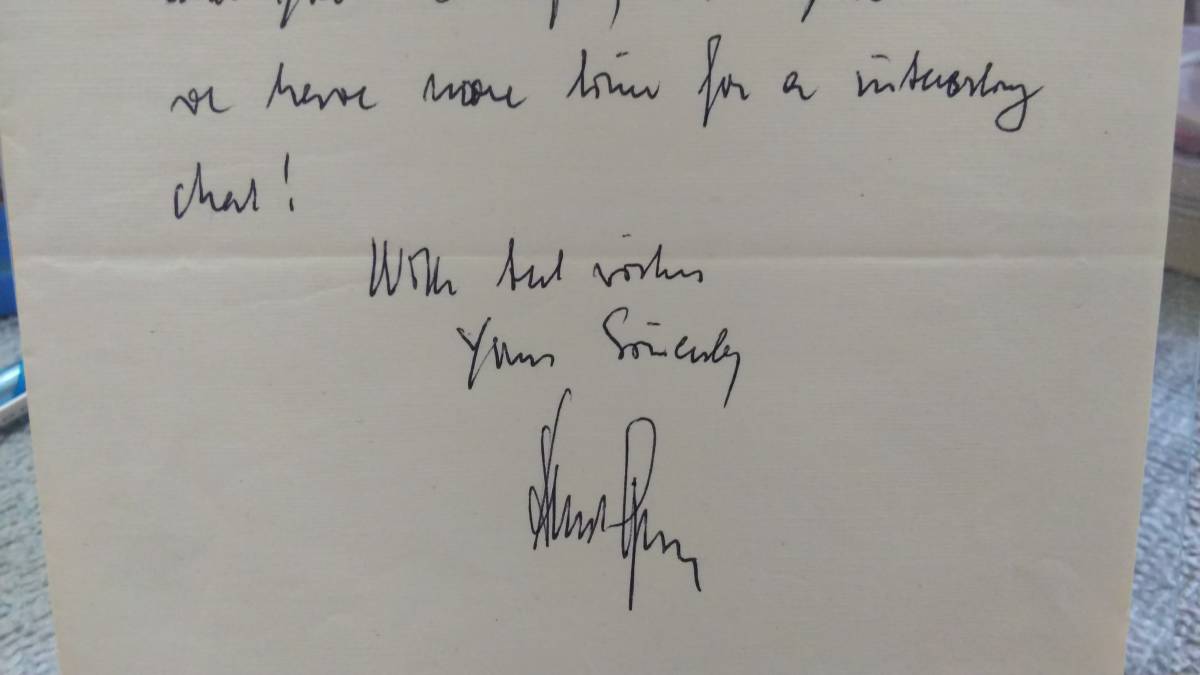 we have more time for a interesting
chat!
With best wishes
Yours Sincerely